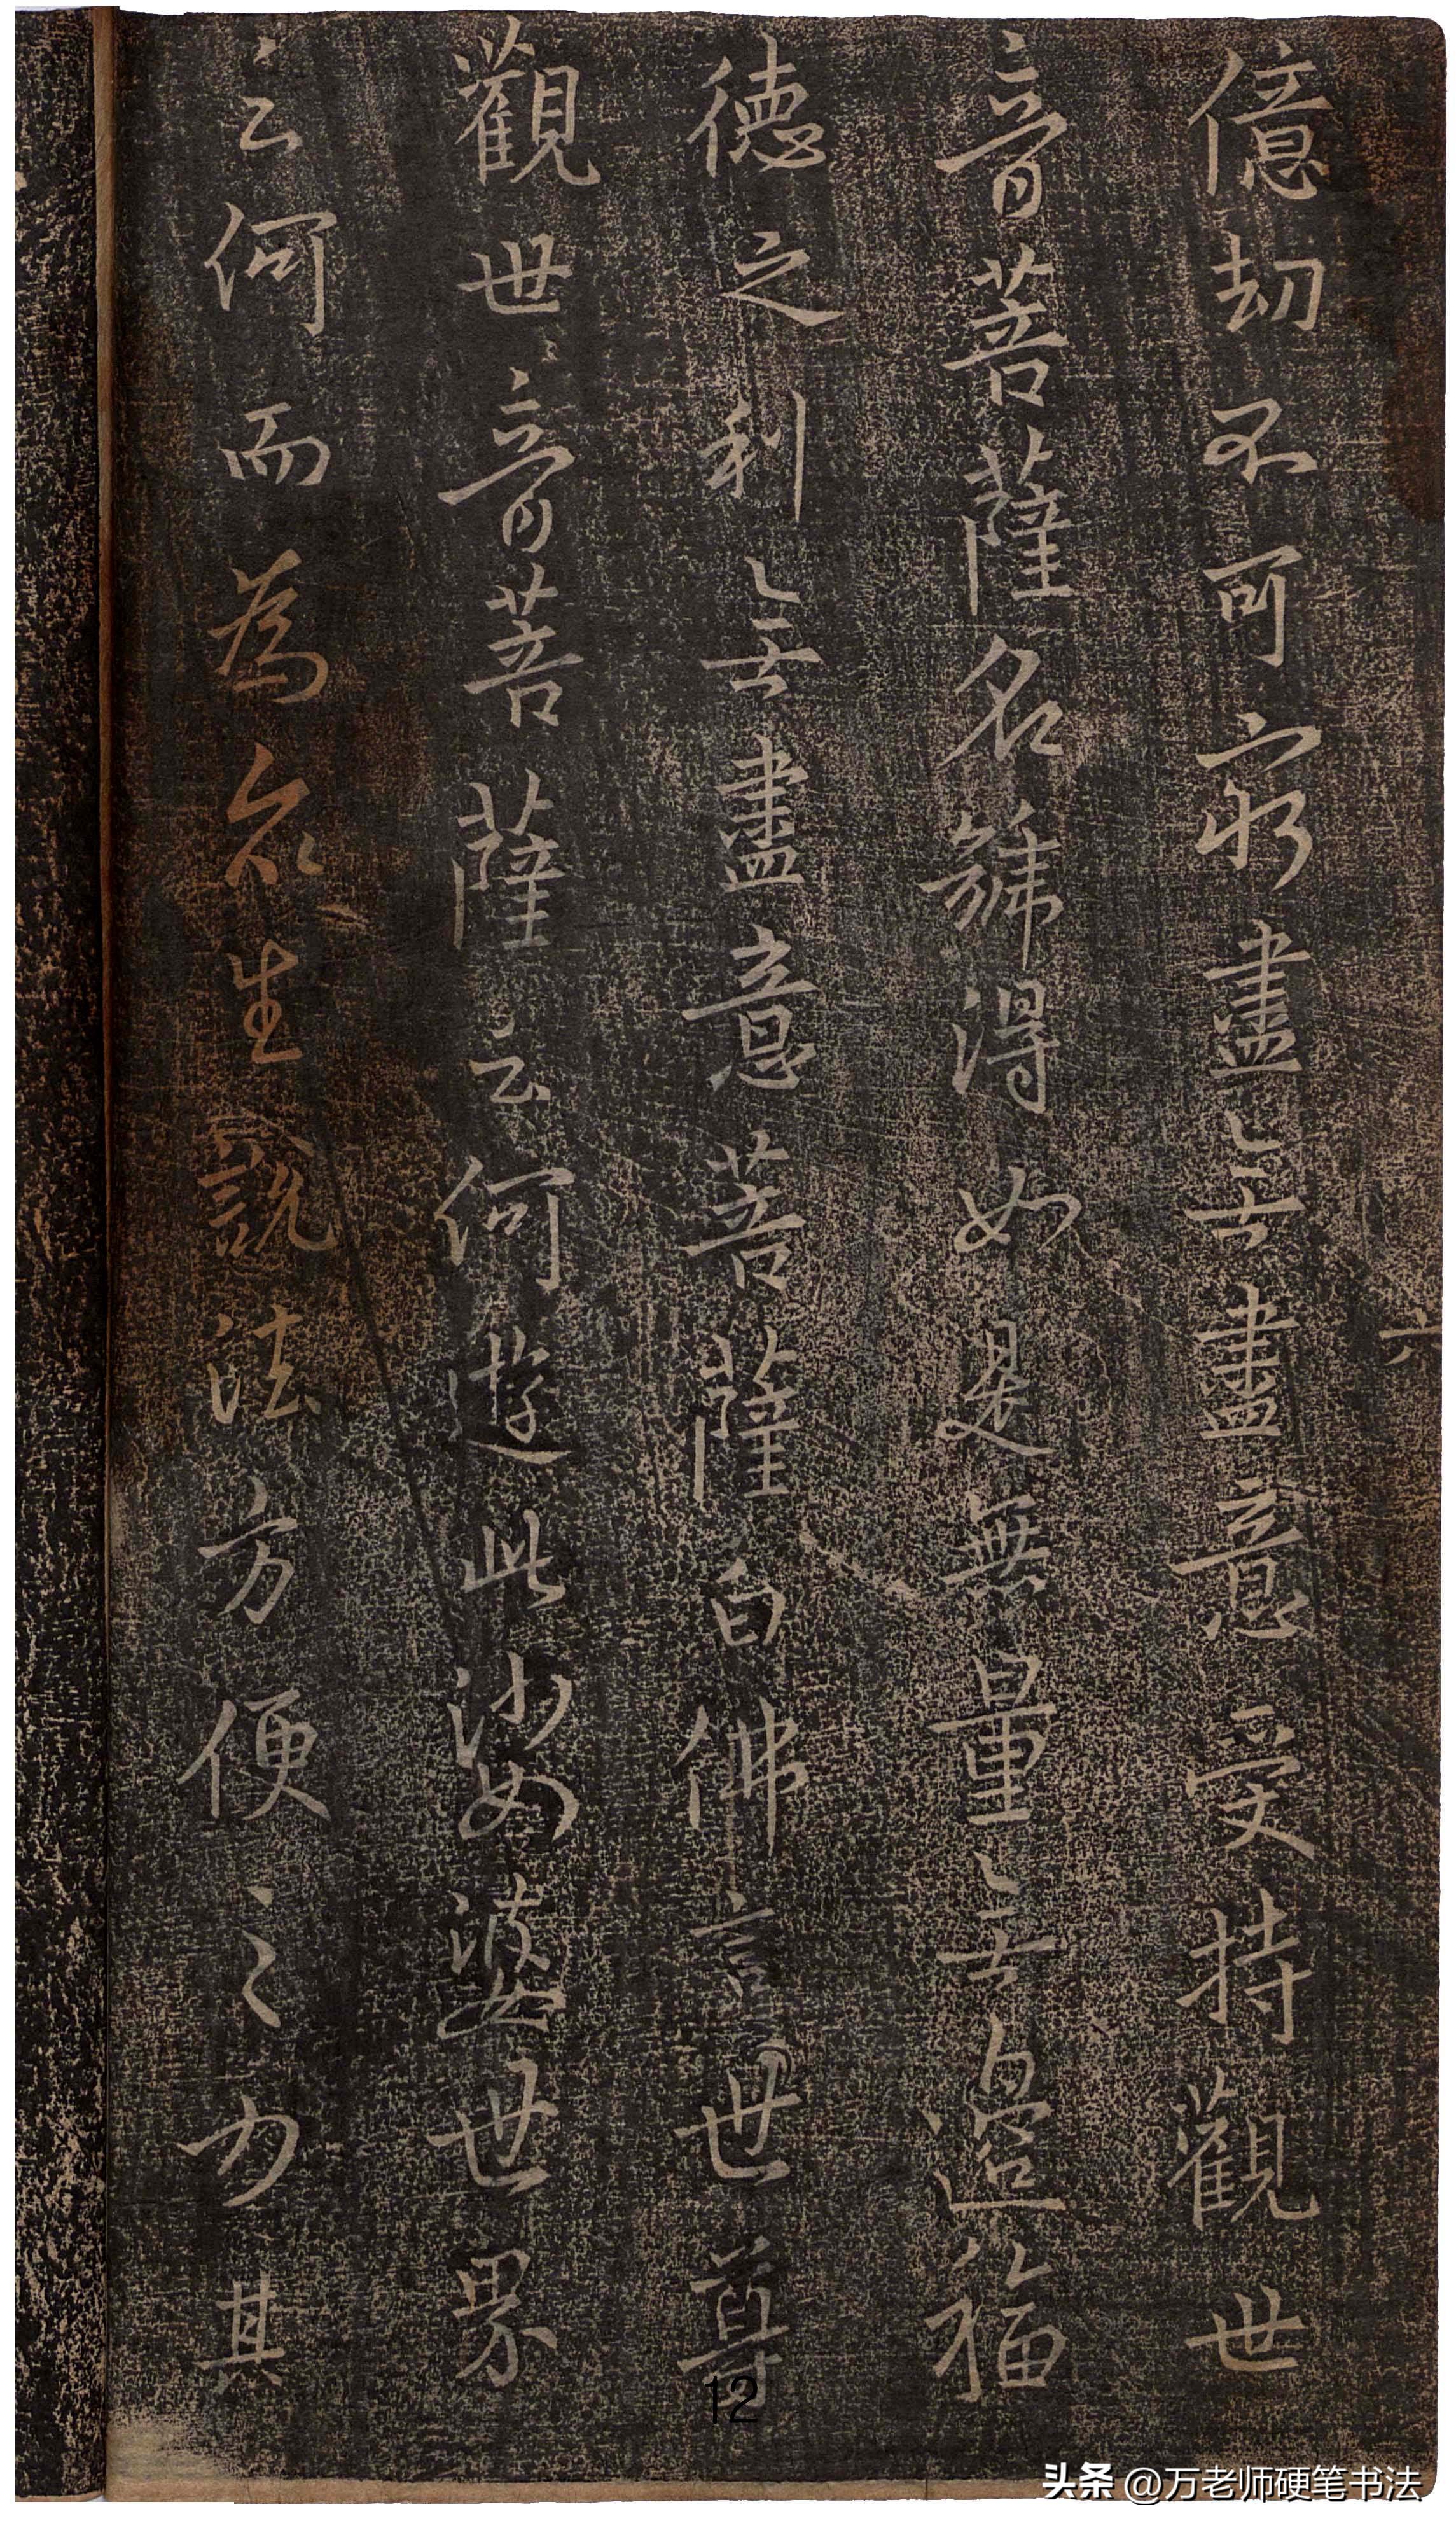 六
億劫不可窮盡无盡意受持觀世
音菩薩名號得如是無量无邊福
德之利无盡意菩薩白佛言世尊
觀世音菩薩云何遊此娑婆世界
云何而為众生說法方便之力其
12
头条 @万老师硬笔书法